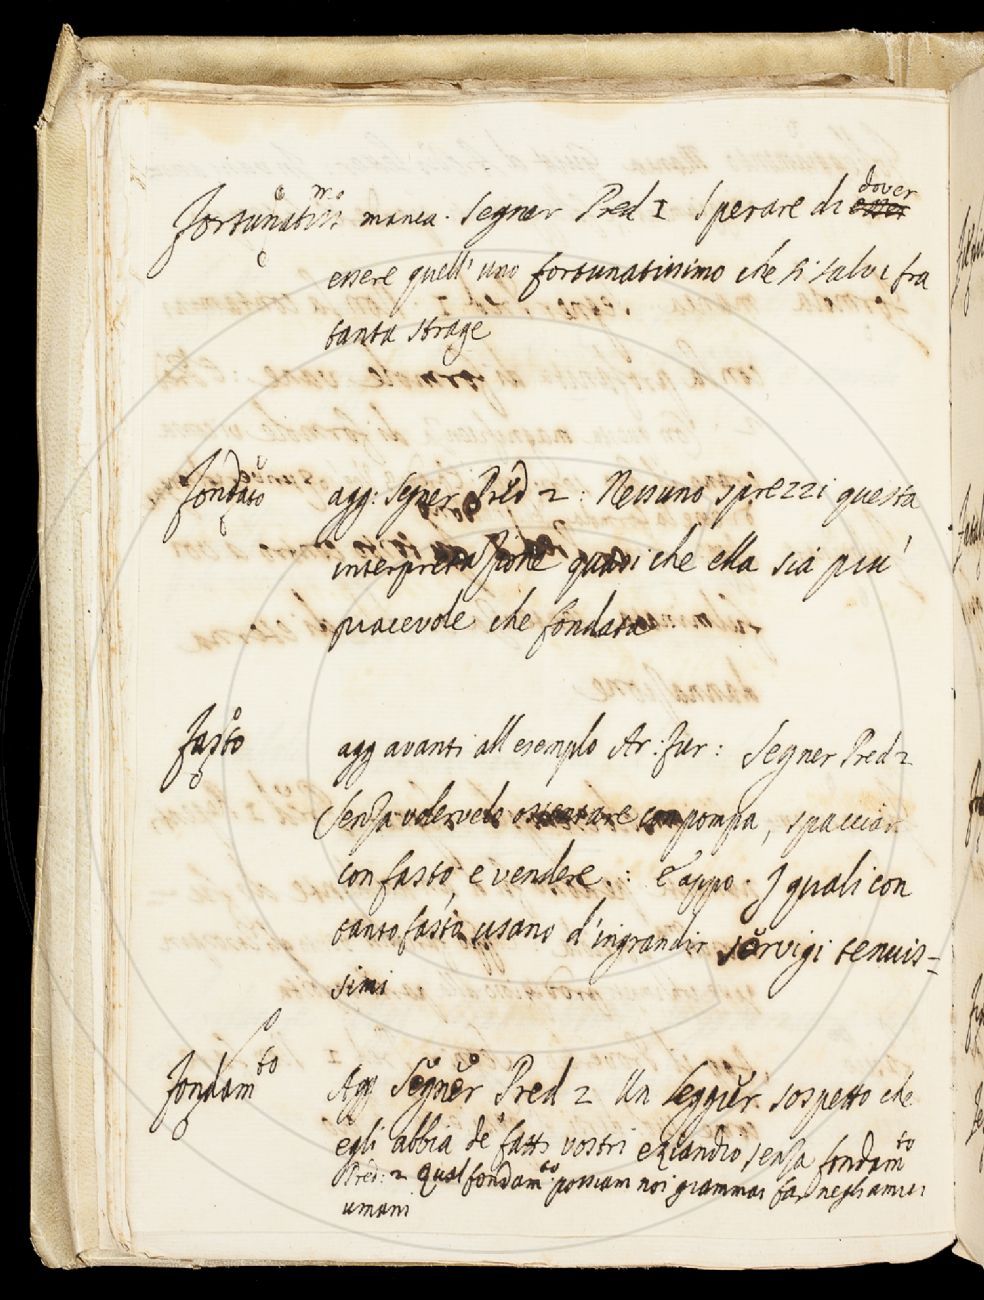 fortunatiss.mo manca. Segner Pred 1 Sperare di esser dover
essere quell'uno fortunatissimo che si salvi fra
tanta strage
fondato agg: Segner Pred 2: Nessuno sprezzi questa
interpretazione quasi che ella sia più
piacevole che fondata
fasto agg avanti all esemplo Ar: fur: Segner Pred 2
Senza volervelo ostentare con pompa, spacciar
con fasto, e vendere.: e appo. I quali con
tanto fasto usano d'ingrandir servigi tenuis=
simi
fondam.to Agg Segner Pred 2 Un leggier sospetto che
egli abbia de' fatti vostri eziandio senza fondam.to
Pred: 2 Qual fondam.to possiam noi giammai far negli amici
umani